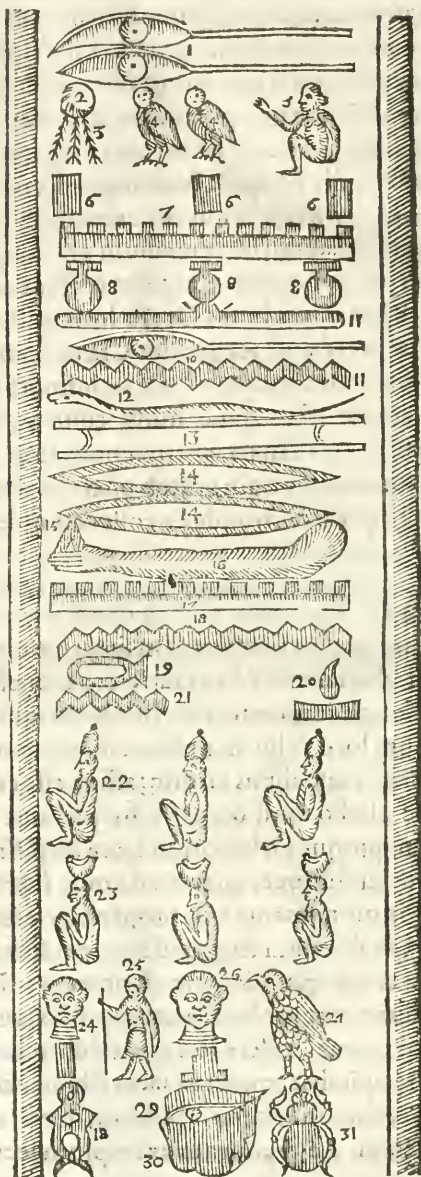 1
2 3 4 5
6 6 6
7
8 8 8
17
10
11
12
13
14
14
15 16
17
18
19 20
21
22
23
24 25 26 27
29
18 30 31